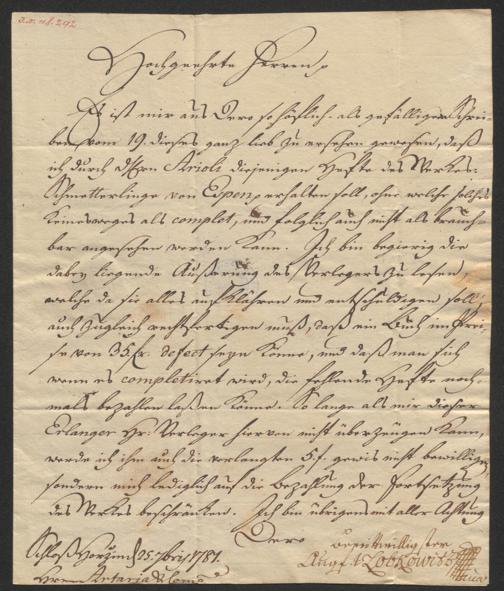 XX. 48.292
Hochgeehrte Herren,
Es ist mir aus Dero so höflich- als gefälligen Schrei-
ben vom 19. dieses ganz lieb zu ersehen gewesen, daß
ich durch Arioli diejenigen Hefte des Werkes:
Schmetterlinge von Espen, erhalten soll, ohne welche solches
keineswegs als complet, und folglich auch nicht als brauch-
bar angesehen werden kann. Ich bin begierig die
dabey liegende Äußerung des Verlegers zu lesen,
welche da sie alles aufklären und entschuldigen soll,
auch zugleich rechtfertigen muß, daß ein Buch im Prei-
se von 35 fr. defect seyn könne, und daß man sich
wenn es completirt wird, die fehlende Hefte noch-
mals bezahlen laßen könne. So lange als mir dieser
Erlanger Hr: Verleger hiervon nicht überzeugen kann,
werde ich ihm auch die verlangten 5. f. gewis nicht bewilligen
sondern mich lediglich auf die Bezahlung der Fortsetzung
des Werkes beschränken. Ich bin übrigens mit aller Achtung
Dero
bereitwilligster
Schloß Horzin 25. 1781.
Aug. Lobkowitz
Herren Artaria & Comp.